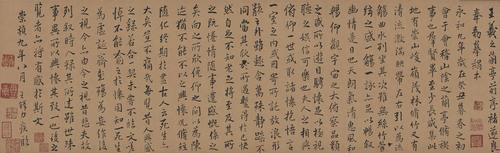 永和九年歲在癸丑暮春之初
會于會稽山陰之蘭亭脩禊
事也羣賢畢至少長咸集此
地有崇山峻領茂林脩竹又有
清流激湍暎帶左右引以為流
觴曲水列坐其次雖無絲竹管
絃之盛一觴一詠亦足以暢敘
幽情是日也天朗氣清惠風和
暢仰觀宇宙之大俯察品類之
盛所以遊目騁懷足以極視聽
之娛信可樂也夫人之相與俯
仰一世或取諸懷抱悟言
一室之內或因寄所託放浪形
骸之外雖趣舍萬殊靜躁不
同當其欣於所遇暫得於己快
然自足不知老之將至及其所
之既惓情隨事遷感慨係之
矣向之所欣俛仰之間以為陳
迹猶不能不以之興懷況脩短
隨化終期於盡古人云死生亦
大矣豈不痛哉每覽昔人興感
之由若合一契未嘗不臨文嗟
悼不能喻之於懷固知一死生
為虛誕齊彭殤為妄作後
之視今亦由今之視昔悲夫故
列敘時人錄其所述雖世殊
事異所以興懷其致一也後之
覽者亦將有感於斯文
崇禎九年